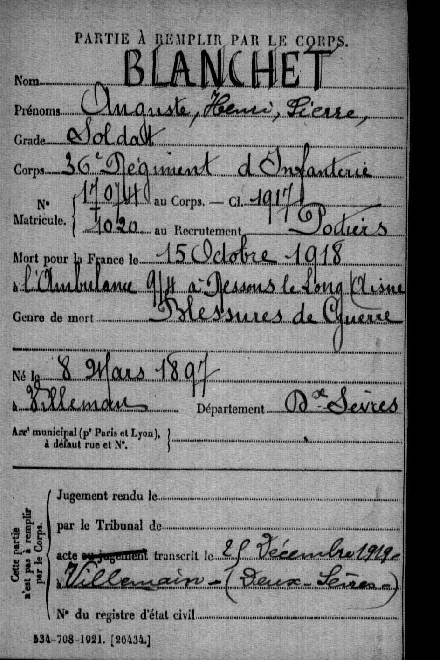 PARTIE À REMPLIR PAR LE CORPS.
Nom BLANCHET
Prénoms Auguste, Henri, Pierre,
Grade Soldat
Corps 36e Régiment d'Infanterie
N° Matricule. { 17074 au Corps. — Cl. 1917
1020 au Recrutement Poitiers
Mort pour la France le 15 Octobre 1918
à l'Ambulance 9/4 à Ressons le Long (Aisne
Genre de mort Blessures de Guerre
Né le 8 Mars 1897
à Villemain Département Dx Sèvres
Arrt municipal (pr Paris et Lyon), à défaut rue et N°. }
Cette partie n'est pas à remplir par le Corps.
Jugement rendu le
par le Tribunal de
acte ou jugement transcrit le 25 Décembre 1919
à Villemain - (Deux-Sèvres-)
N° du registre d'état civil
534-708-1921. [26434.]